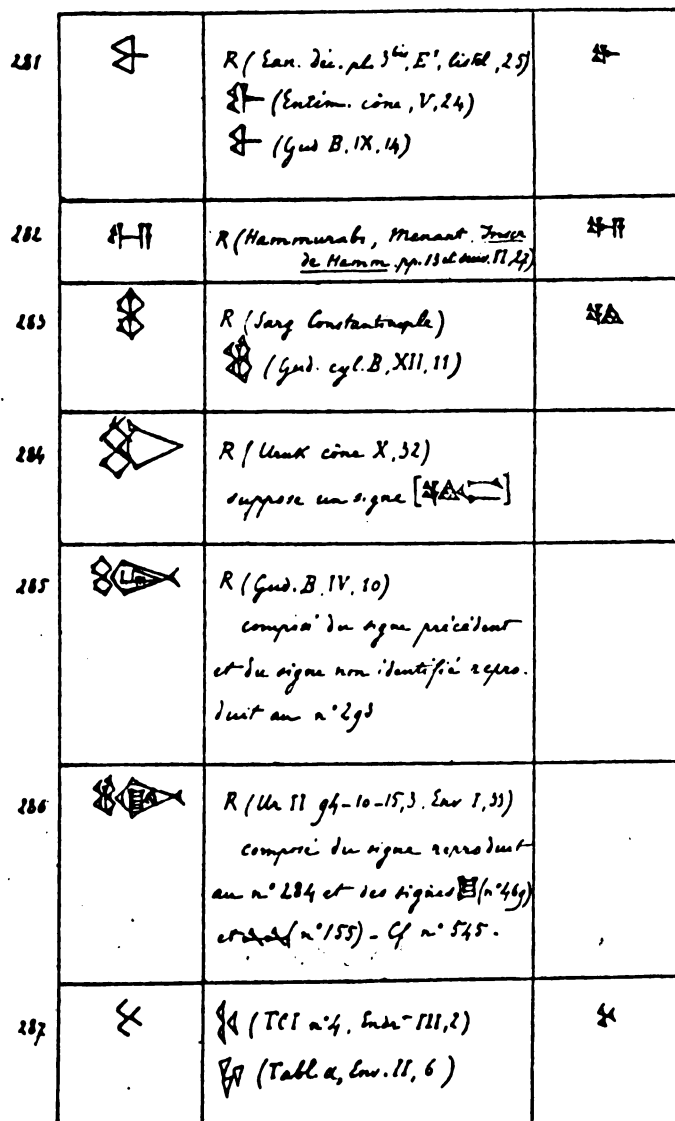 281 R (Ean. déc. pl. 3 bis, E¹, listel, 25)
(Entém. cône, V, 24)
(Gud B, IX, 14)
282 R (Hammurabi, Menant. Inscr
de Hamm. pp. 13 et suiv. II, 27)
283 R (Sarg Constantinople)
(Gud. cyl. B, XII, 11)
284 R (Uruk cône X, 32)
suppose un signe [ ]
285 R (Gud. B, IV, 10)
composé du signe précédent
et du signe non identifié repro.
duit au n° 293
286 R (Ur II 94-10-15, 3. Env I, 33)
composé du signe reproduit
au n° 284 et des signes (n° 469)
et (n° 155) - Cf n° 545.
287 (TCI n° 4, Endr¹ III, 2)
(Tabl. α, Env. II, 6)